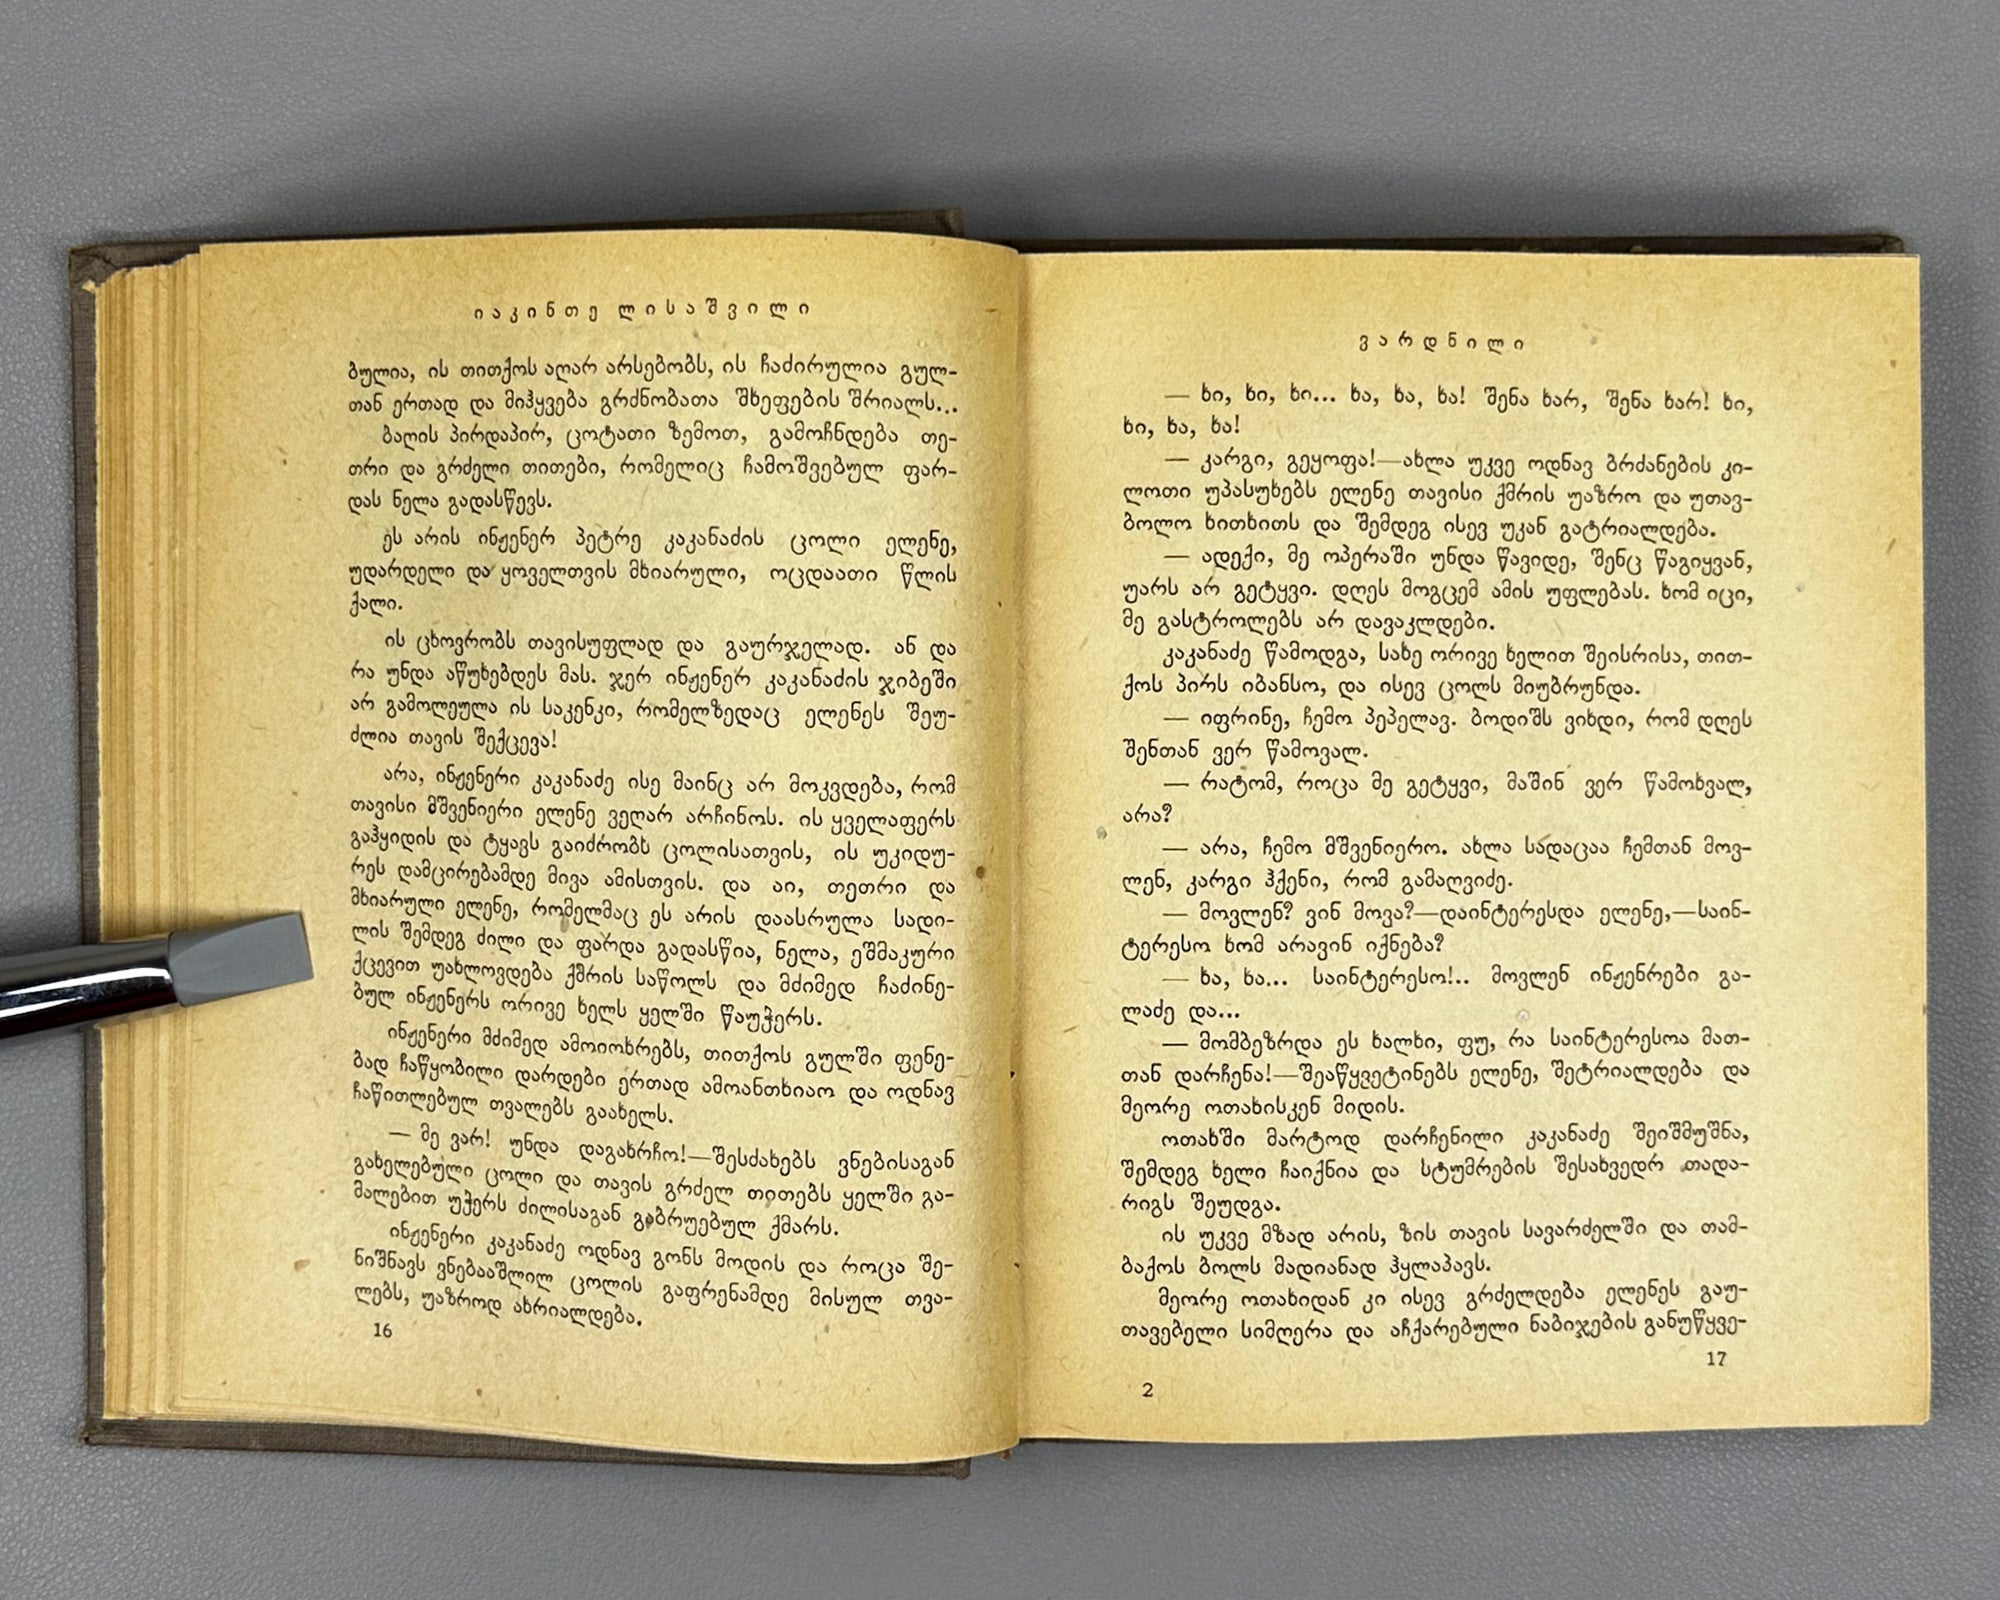 იაკინთე ლისაშვილი
ბულია, ის თითქოს აღარ არსებობს, ის ჩაძირულია გულ-
თან ერთად და მიჰყვება გრძნობათა შხეფების შრიალს...
ბაღის პირდაპირ, ცოტათი ზემოთ, გამოჩნდება თე-
თრი და გრძელი თითები, რომელიც ჩამოშვებულ ფარ-
დას ნელა გადასწევს.
ეს არის ინჟენერ პეტრე კაკანაძის ცოლი ელენე,
უდარდელი და ყოველთვის მხიარული, ოცდაათი წლის
ქალი.
ის ცხოვრობს თავისუფლად და გაურჯელად. ან და
რა უნდა აწუხებდეს მას. ჯერ ინჟენერ კაკანაძის ჯიბეში
არ გამოლეულა ის საკენკი, რომელზედაც ელენეს შეუ-
ძლია თავის შექცევა!
არა, ინჟენერი კაკანაძე ისე მაინც არ მოკვდება, რომ
თავისი მშვენიერი ელენე ვეღარ არჩინოს. ის ყველაფერს
გაჰყიდის და ტყავს გაიძრობს ცოლისათვის, ის უკიდუ-
რეს დამცირებამდე მივა ამისთვის. და აი, თეთრი და
მხიარული ელენე, რომელმაც ეს არის დაასრულა სადი-
ლის შემდეგ ძილი და ფარდა გადასწია, ნელა, ეშმაკური
ქცევით უახლოვდება ქმრის საწოლს და მძიმედ ჩაძინე-
ბულ ინჟენერს ორივე ხელს ყელში წაუჭერს.
ინჟენერი მძიმედ ამოიოხრებს, თითქოს გულში ფენე-
ბად ჩაწყობილი დარდები ერთად ამოანთხიაო და ოდნავ
ჩაწითლებულ თვალებს გაახელს.
— მე ვარ! უნდა დაგახრჩო!—შესძახებს ვნებისაგან
გახელებული ცოლი და თავის გრძელ თითებს ყელში გა-
მალებით უჭერს ძილისაგან გაბრუებულ ქმარს.
ინჟენერი კაკანაძე ოდნავ გონს მოდის და როცა შე-
ნიშნავს ვნებააშლილ ცოლის გაფრენამდე მისულ თვა-
ლებს, უაზროდ ახრიალდება.
16
ვარდნილი
— ხი, ხი, ხი... ხა, ხა, ხა! შენა ხარ, შენა ხარ! ხი,
ხი, ხა, ხა!
— კარგი, გეყოფა!—ახლა უკვე ოდნავ ბრძანების კი-
ლოთი უპასუხებს ელენე თავისი ქმრის უაზრო და უთავ-
ბოლო ხითხითს და შემდეგ ისევ უკან გატრიალდება.
— ადექი, მე ოპერაში უნდა წავიდე, შენც წაგიყვან,
უარს არ გეტყვი. დღეს მოგცემ ამის უფლებას. ხომ იცი,
მე გასტროლებს არ დავაკლდები.
კაკანაძე წამოდგა, სახე ორივე ხელით შეისრისა, თით-
ქოს პირს იბანსო, და ისევ ცოლს მიუბრუნდა.
— იფრინე, ჩემო პეპელავ. ბოდიშს ვიხდი, რომ დღეს
შენთან ვერ წამოვალ.
— რატომ, როცა მე გეტყვი, მაშინ ვერ წამოხვალ,
არა?
— არა, ჩემო მშვენიერო. ახლა სადაცაა ჩემთან მოვ-
ლენ, კარგი ჰქენი, რომ გამაღვიძე.
— მოვლენ? ვინ მოვა?—დაინტერესდა ელენე,—საინ-
ტერესო ხომ არავინ იქნება?
— ხა, ხა... საინტერესო!.. მოვლენ ინჟენრები გა-
ლაძე და...
— მომბეზრდა ეს ხალხი, ფუ, რა საინტერესოა მათ-
თან დარჩენა!—შეაწყვეტინებს ელენე, შეტრიალდება და
მეორე ოთახისკენ მიდის.
ოთახში მარტოდ დარჩენილი კაკანაძე შეიშმუშნა,
შემდეგ ხელი ჩაიქნია და სტუმრების შესახვედრ თადა-
რიგს შეუდგა.
ის უკვე მზად არის, ზის თავის სავარძელში და თამ-
ბაქოს ბოლს მადიანად ჰყლაპავს.
მეორე ოთახიდან კი ისევ გრძელდება ელენეს გაუ-
თავებელი სიმღერა და აჩქარებული ნაბიჯების განუწყვე-
17
2